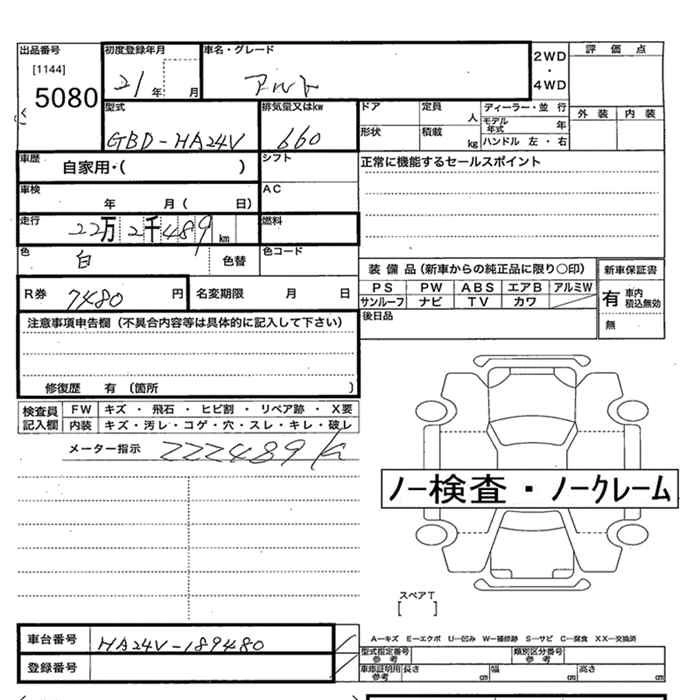 出品番号 初度登録年月 車名・グレード 2WD・4WD 評価点
[1144]
5080
21年 月 アルト
型式 排気量又はkw ドア 定員 人 ディーラー・並行 外装 内装
GBD-HA24V 660 形状 積載 kg モデル年式 年
ハンドル 左・右
車歴 自家用・( ) シフト 正常に機能するセールスポイント
車検 年 月( 日) AC
走行 22万2千489km 燃料
色 白 色替 色コード
装備品(新車からの純正品に限り○印) 新車保証書
PS PW ABS エアB アルミW 有 車内積込無効
サンルーフ ナビ TV カワ
R券 7480円 名変期限 月 日 後日品 無
注意事項申告欄(不具合内容等は具体的に記入して下さい)
修復歴 有 (箇所 )
検査員記入欄 FW キズ・飛石・ヒビ割・リペア跡・X要
内装 キズ・汚レ・コゲ・穴・スレ・キレ・破レ
メーター指示 222489K
ノー検査・ノークレーム
スペアT
[ ]
車台番号 HA24V-189480
登録番号
A―キズ E―エクボ U―凹み W―補修跡 S―サビ C―腐食 XX―交換済
型式指定番号 参考 類別区分番号 参考
車庫証明用 参考 長さ cm 幅 cm 高さ cm